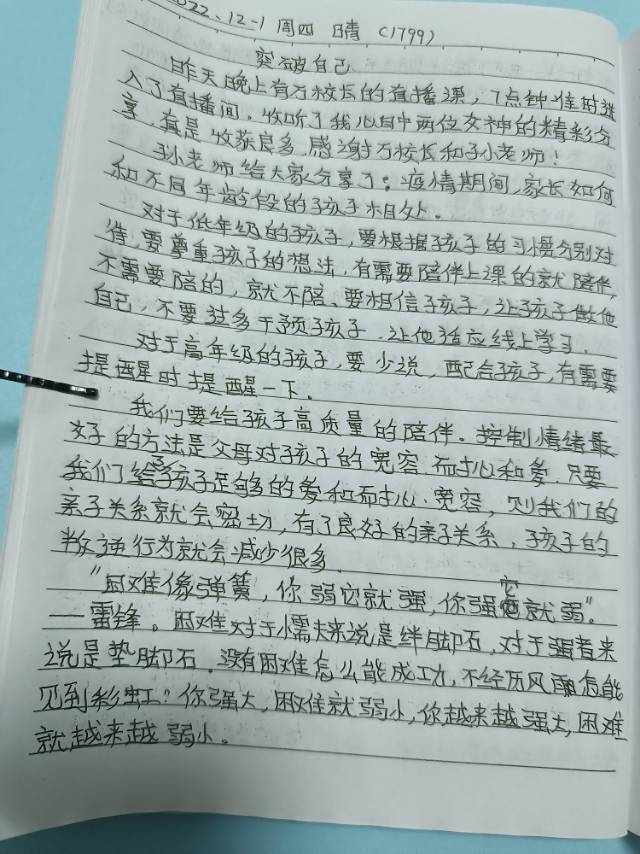 2022、12-1 周四 晴 (1799)
突破自己
昨天晚上有万校长的直播课，7点钟准时进
入了直播间。收听了我心目中两位女神的精彩分
享，真是收获良多，感谢万校长和孙老师！
孙老师给大家分享了：疫情期间，家长如何
和不同年龄段的孩子相处。
对于低年级的孩子，要根据孩子的习惯分别对
待，要尊重孩子的想法，有需要陪伴上课的就陪伴，
不需要陪的，就不陪、要相信孩子，让孩子做他
自己，不要过多干预孩子，让他适应线上学习，
对于高年级的孩子，要少说，配合孩子，有需要
提醒时提醒一下。
我们要给孩子高质量的陪伴。控制情绪最
好的方法是父母对孩子的宽容、耐心和爱，只要
我们给予孩子足够的爱和耐心、宽容，则我们的
亲子关系就会密切，有了良好的亲子关系，孩子的
叛逆行为就会减少很多。
"困难像弹簧，你弱它就强，你强它就弱"。
—雷锋。困难对于懦夫来说是绊脚石，对于强者来
说是垫脚石，没有困难怎么能成功，不经历风雨怎能
见到彩虹？你强大，困难就弱小，你越来越强大，困难
就越来越弱小。